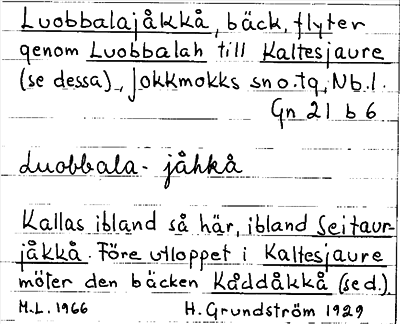 Luobbalajåkkå, bäck, flyter
genom Luobbalah till Kaltesjaure
(se dessa), Jokkmokks sn o. tg, Nb. l.
Gn 21 b 6
Luobbala-jåhkå
Kallas ibland så här, ibland Seitaur-
jåkkå. Före utloppet i Kaltesjaure
möter den bäcken Kåddåkkå (se d.)
M.L. 1966 H. Grundström 1929